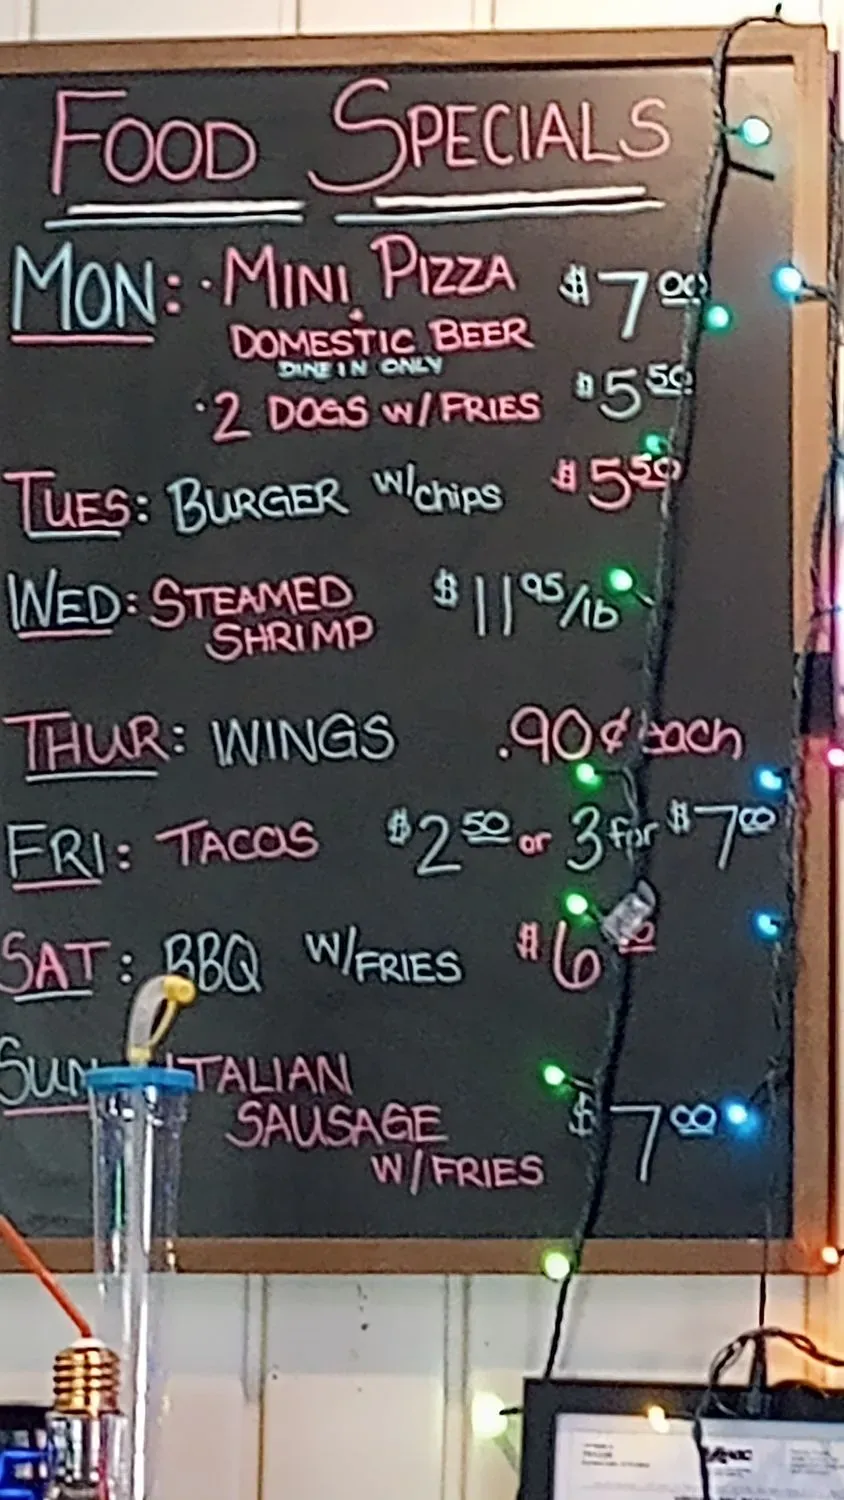 FOOD SPECIALS
MON: · MINI PIZZA $7 00
DOMESTIC BEER
DINE IN ONLY
· 2 DOGS W/FRIES $5 50
TUES: BURGER w/chips $5 50
WED: STEAMED $11 95/lb
SHRIMP
THUR: WINGS .90¢ each
FRI: TACOS $2 50 or 3 for $7 00
SAT: BBQ W/FRIES $6
SUN ITALIAN
SAUSAGE $7 00
W/FRIES